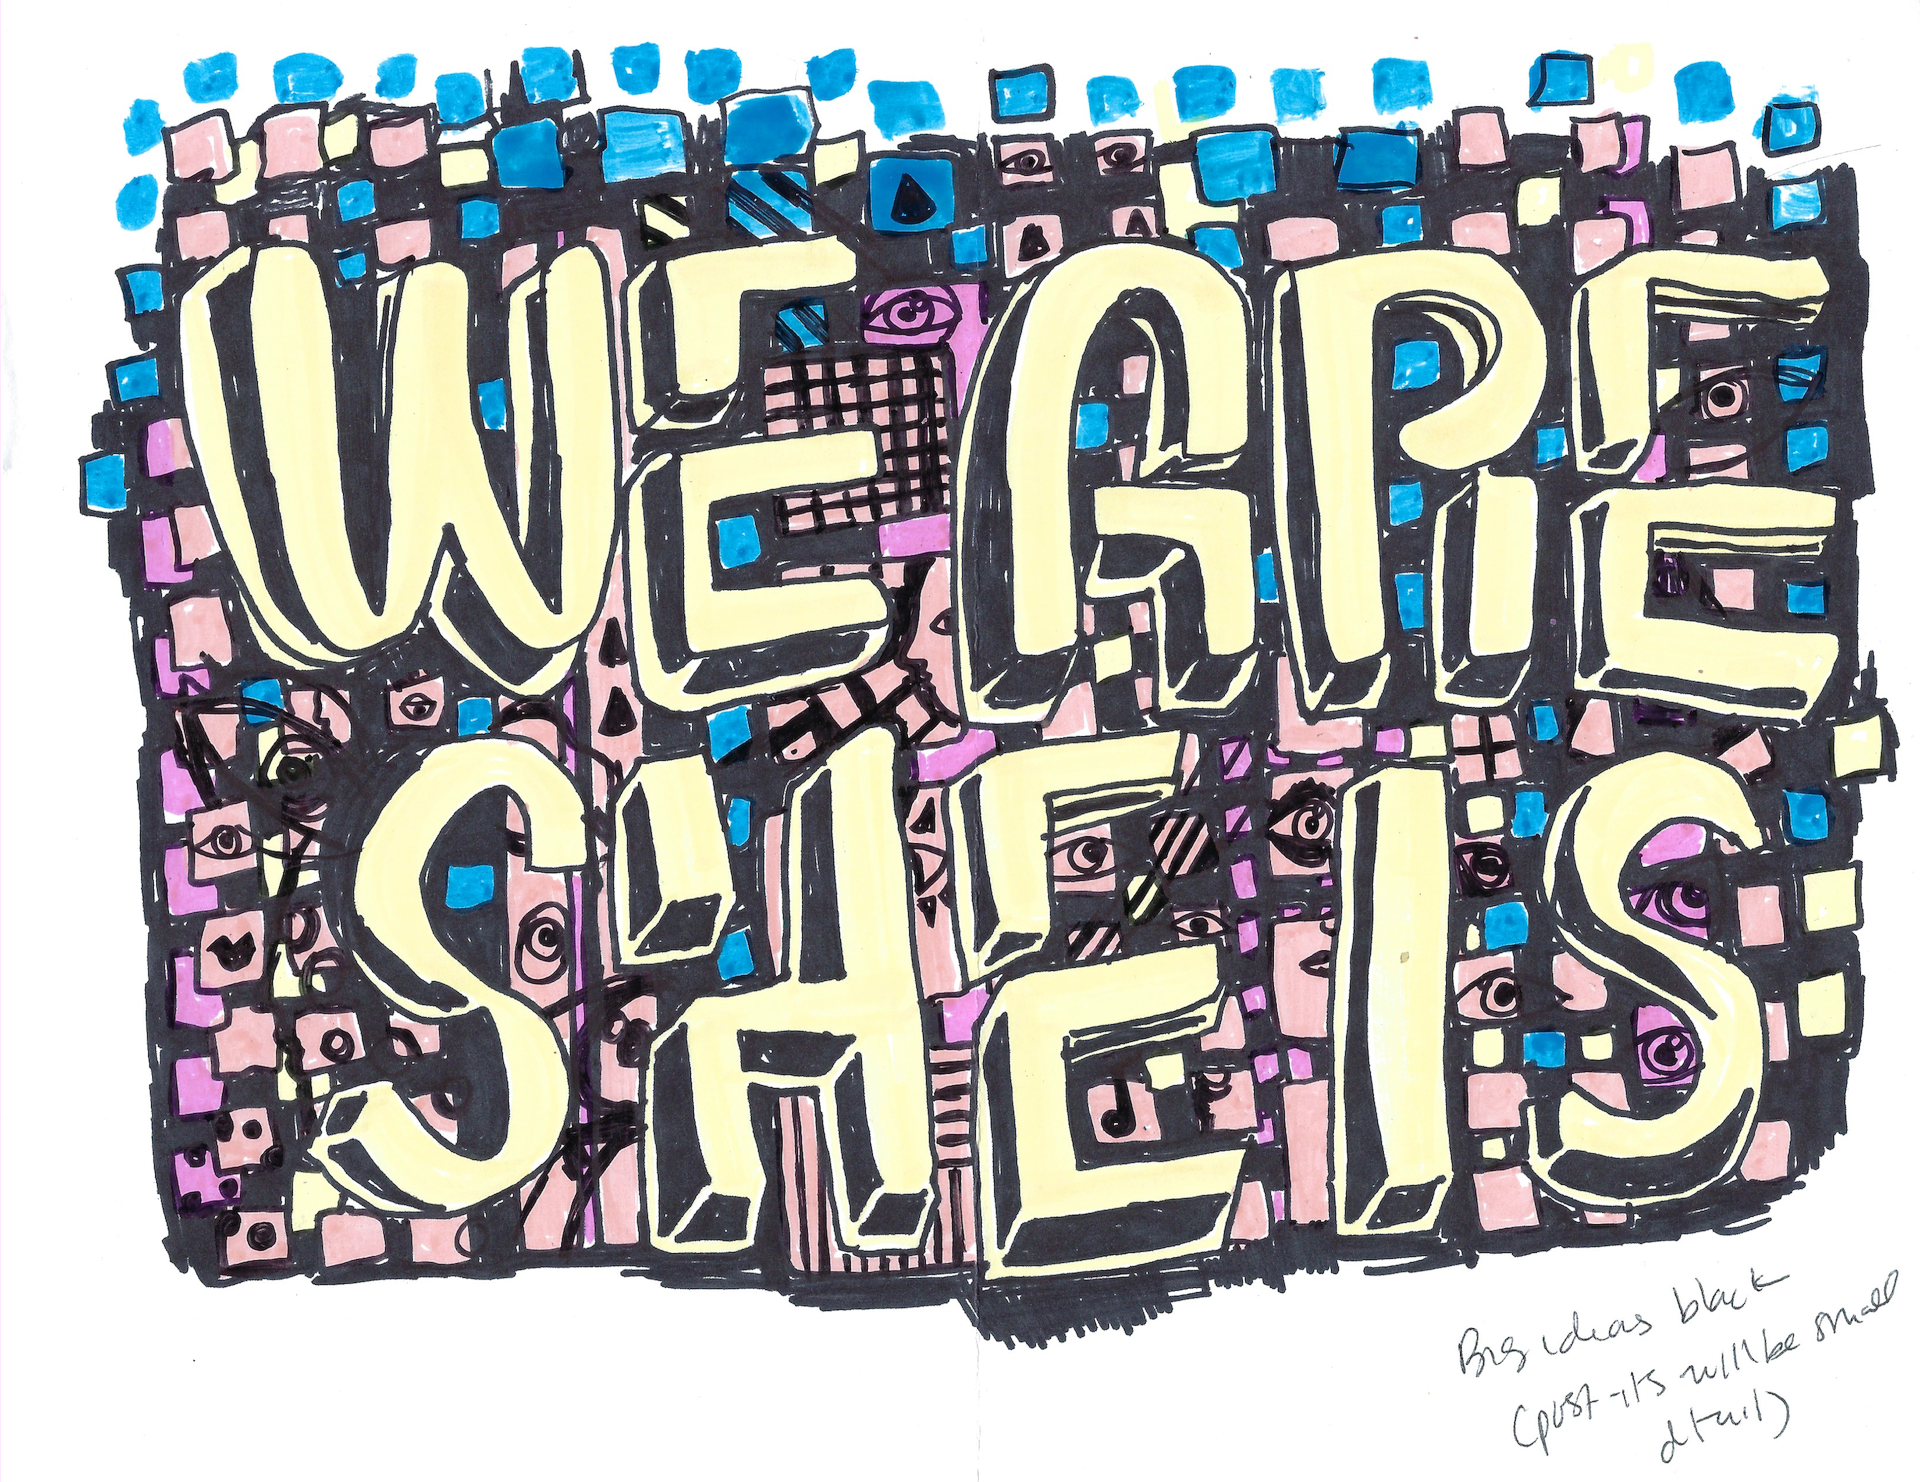 WE ARE
SHE IS
Big ideas black
(post-its will be small
detail)